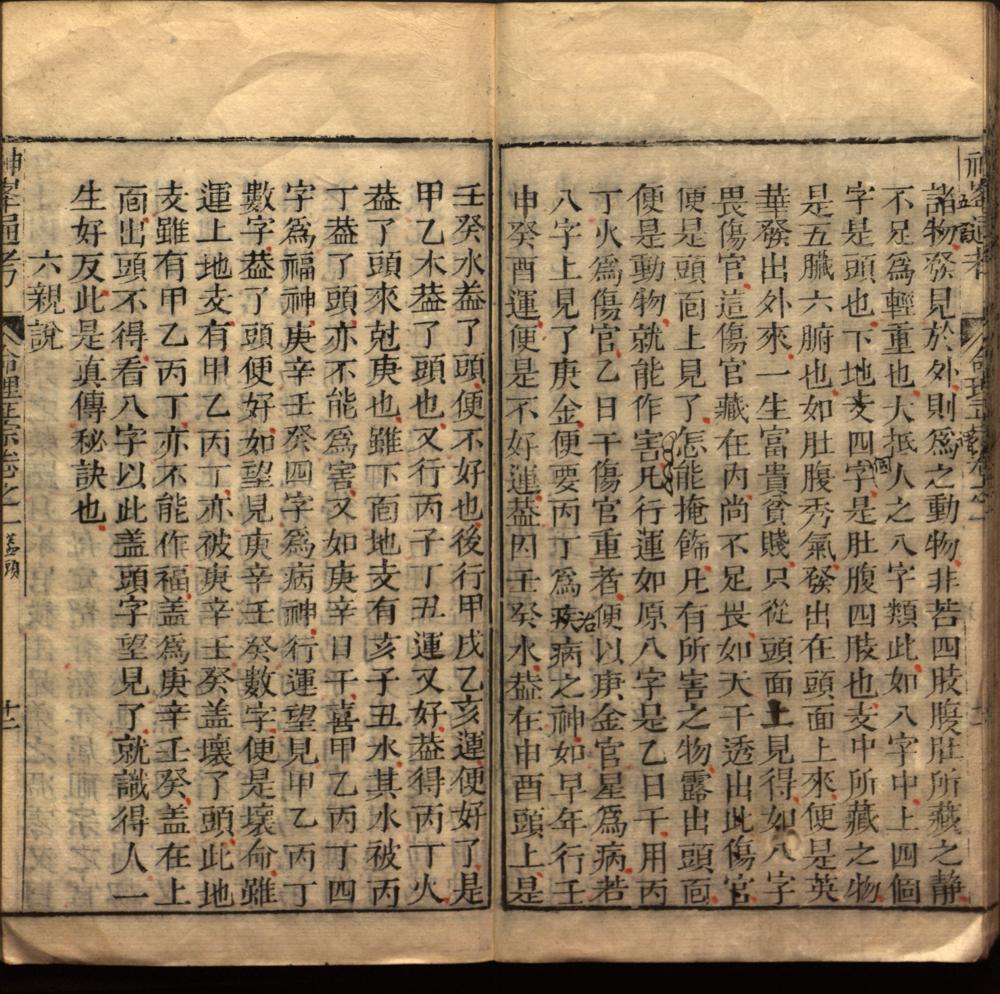 諸物發見於外則爲之動物非若四肢腹肚所藏之靜
不足爲輕重也大抵人之八字類此如八字中上四個
字是頭也下地支四字是肚腹四肢也支中所藏之物
是五臟六腑也如肚腹秀氣發出在頭面上來便是英
華發出外來一生富貴貧賤只從頭面上見得如八字
畏傷官這傷官藏在內尚不足畏如天干透出此傷官
便是頭面上見了怎能掩餙凡有所害之物露出頭面
便是動物就能作害凡行運如原八字是乙日干用丙
丁火爲傷官乙日干傷官重者便以庚金官星爲病若
八字上見了庚金便要丙丁爲治病之神如早年行壬
申癸酉運便是不好運葢因壬癸水葢在申酉頭上是
壬癸水葢了頭便不好也後行甲戌乙亥運便好了是
甲乙木葢了頭也又行丙子丁丑運又好葢得丙丁火
葢了頭來尅庚也雖下面地支有亥子丑水其水被丙
丁葢了頭亦不能爲害又如庚辛日干喜甲乙丙丁四
字爲福神庚辛壬癸四字爲病神行運望見甲乙丙丁
數字葢了頭便好如望見庚辛壬癸數字便是壞命雖
運上地支有甲乙丙丁亦被庚辛壬癸盖壞了頭此地
支雖有甲乙丙丁亦不能作福盖爲庚辛壬癸盖在上
面出頭不得看八字以此盖頭字望見了就識得人一
生好反此是真傳秘訣也
六親說
神峯通考
命理正宗卷之一
蓋頭